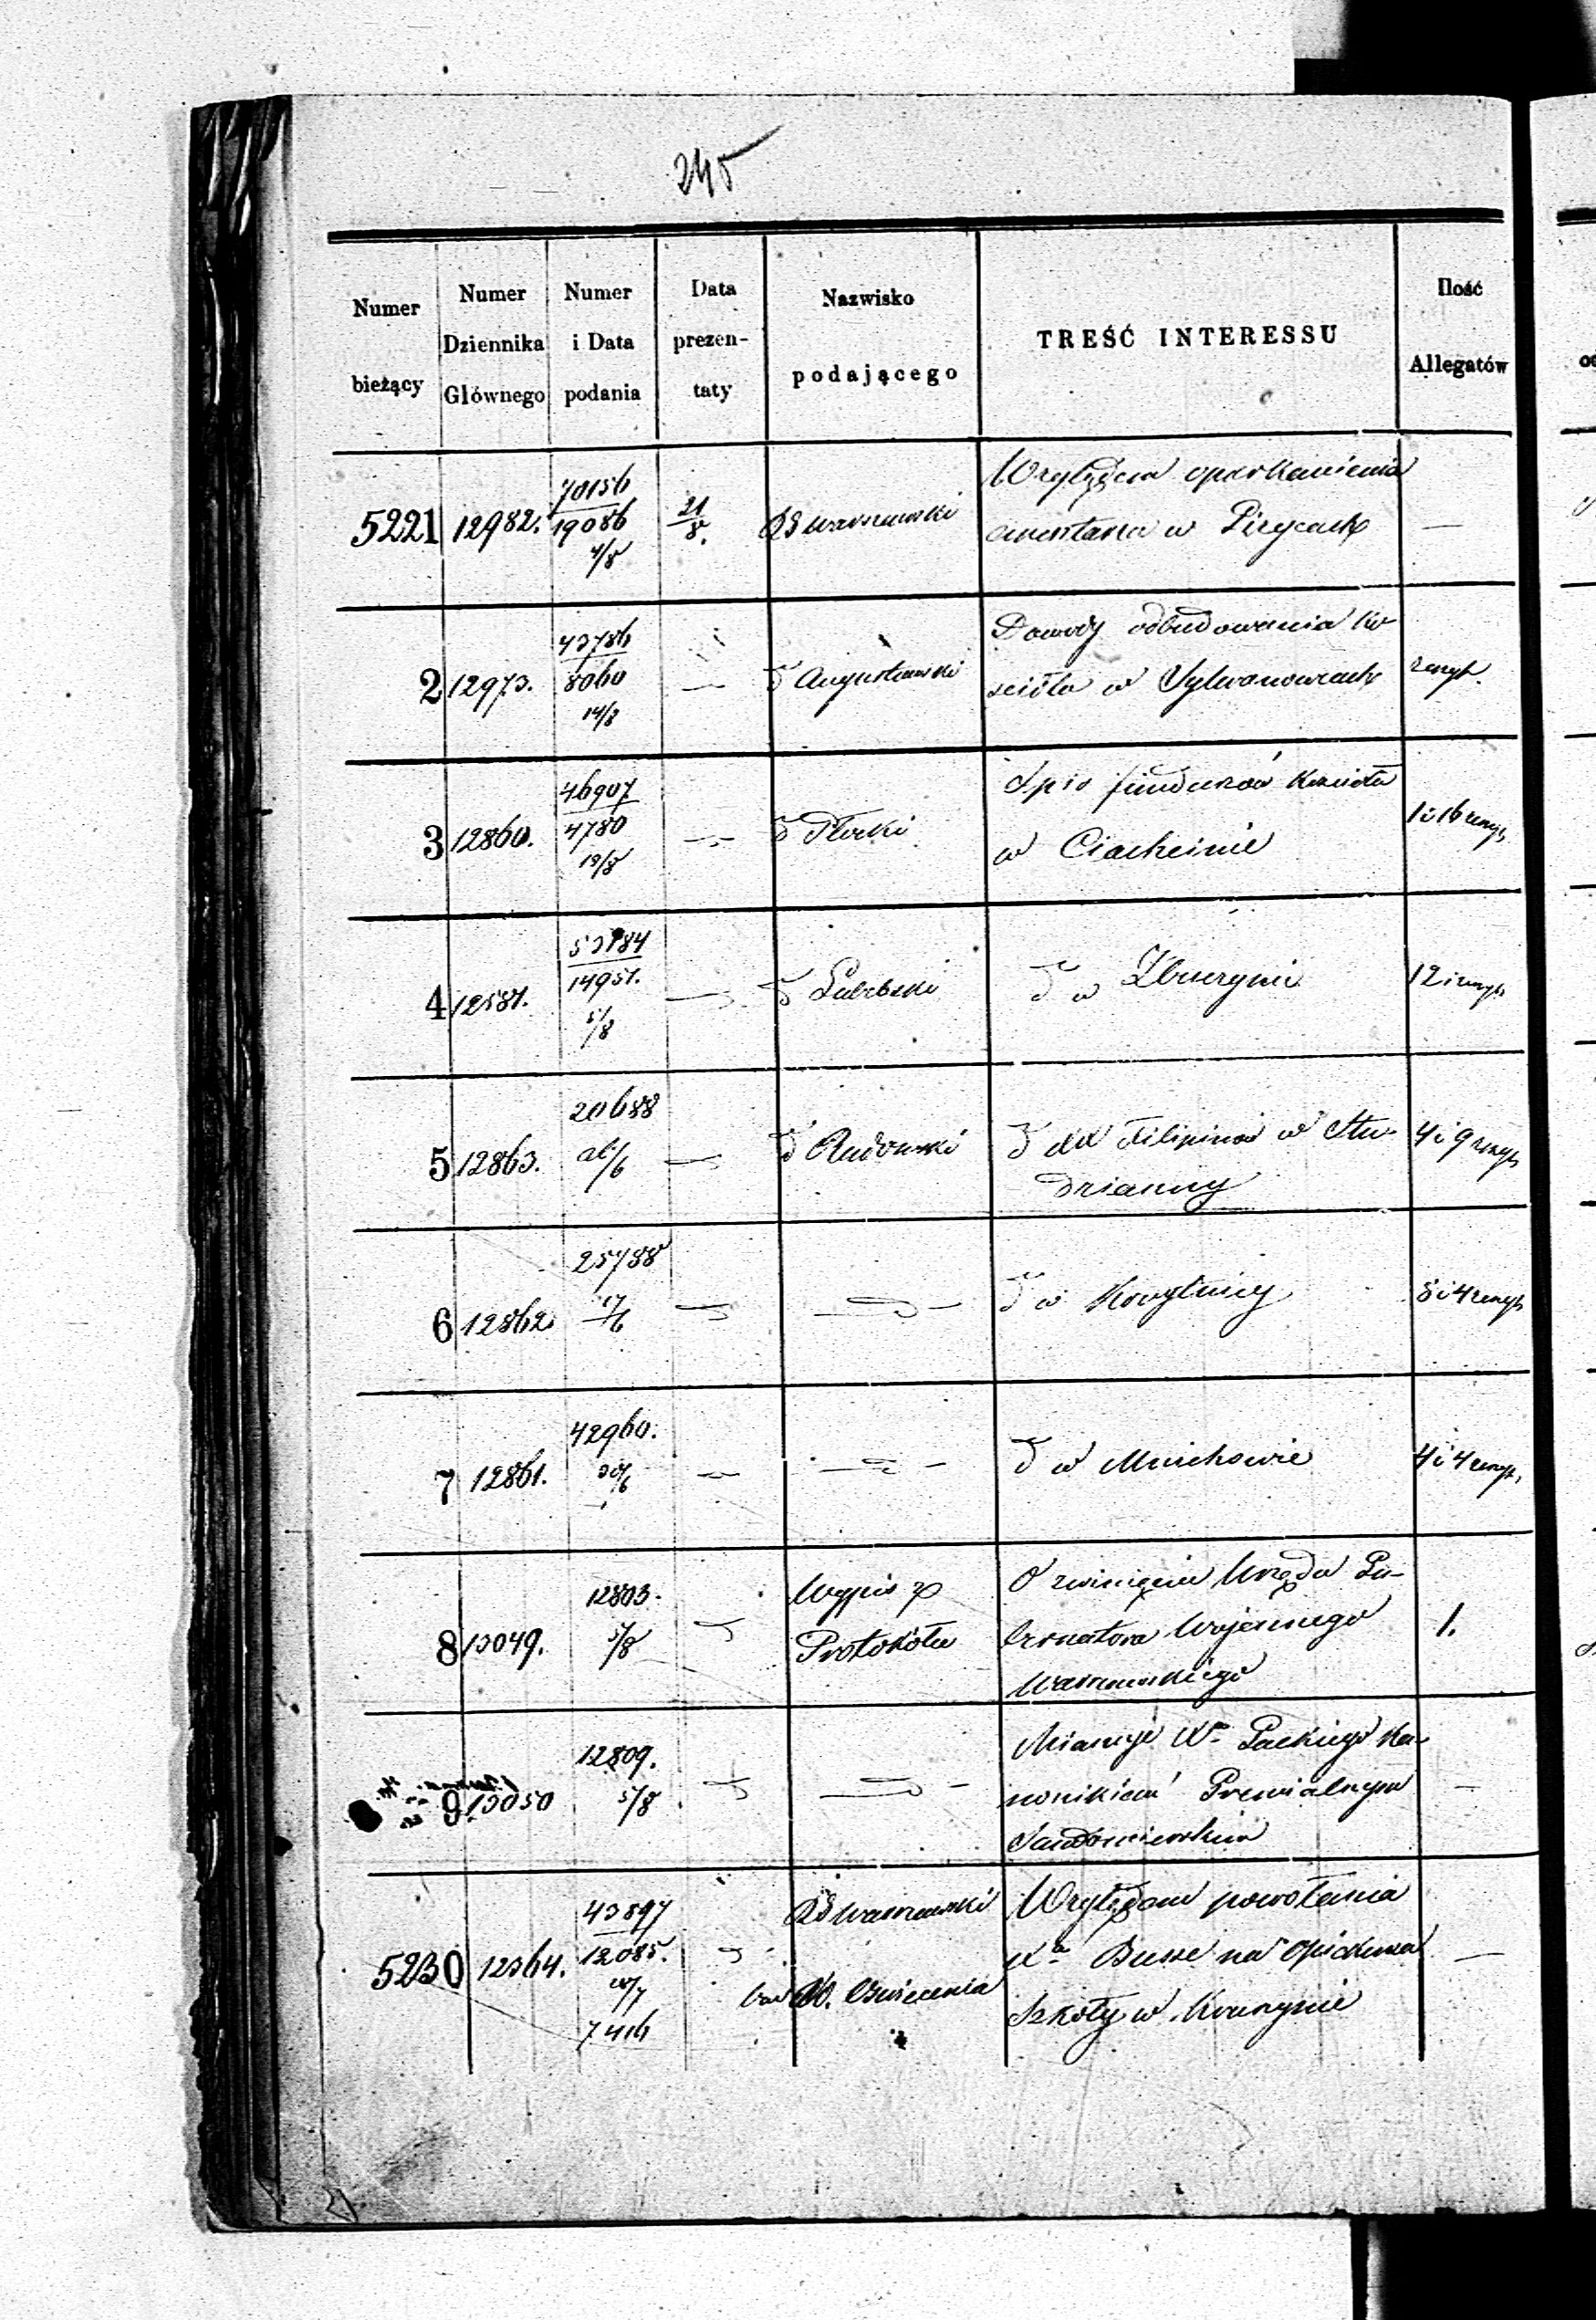 245
Numer bieżący
Numer Dziennika Głównego
Numer i Data podania
Data prezen-taty
Nazwisko podającego
TREŚĆ INTERESSU
Ilość Allegatów
5221 12982. 70156 19086 4/8 21/8. RG Warszawski Względem oparkanienia
cmentarza w Pirycach —
2 12973. 43786 8060 14/8 — d Augustowski Dowody odbudowania ko-
ścioła w Sylwanowcach zeszyt.
3 12860. 46907 4780 13/8 — d Płocki Spis funduszów kościoła
w Ciachcinie 1 i 16 zeszyt
4 12587. 14951. 5/8 — d Lubelski d w Zbuczynie 12 i zeszyt
5 12863. 20688 /6 — d Radomski d XX Filipinów w Stu-
dzianny 4 i 9 zeszyt
6 12862 25788 17/6 — d — d w Korytnicy 5 i 4 zeszyt
7 12861. 42960. 30/6 — d — d w Mnichowie 4 i 4 zeszyt,
8 13049. 12803. 5/8 Wypis z
Protokółu
O zwinięciu Urzędu Gu-
bernatora Wojennego
Warszawskiego 1.
9 13050 12809. 5/8 — d — Mianuje Xa Packiego Ka-
nonikiem Gremialnym
Sandomierskim —
5230 12364. 43897 12085. 7416 RG Warszawski
Oświecenia
Względem powołania
Xa Busse na Opiekuna
Szkoły w —